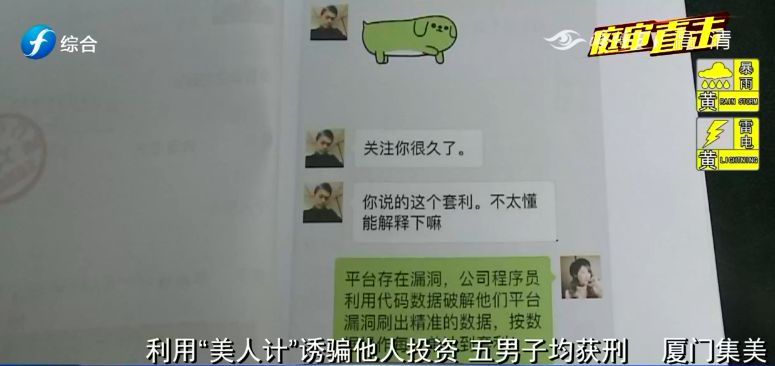 综合
庭审直击
暴雨
黄
RAIN STORM
雷电
黄
LIGHTNING
关注你很久了。
你说的这个套利。不太懂
能解释下嘛
平台存在漏洞，公司程序员
利用代码数据破解他们平台
漏洞刷出精准的数据，按数
利用“美人计”诱骗他人投资 五男子均获刑 厦门集美